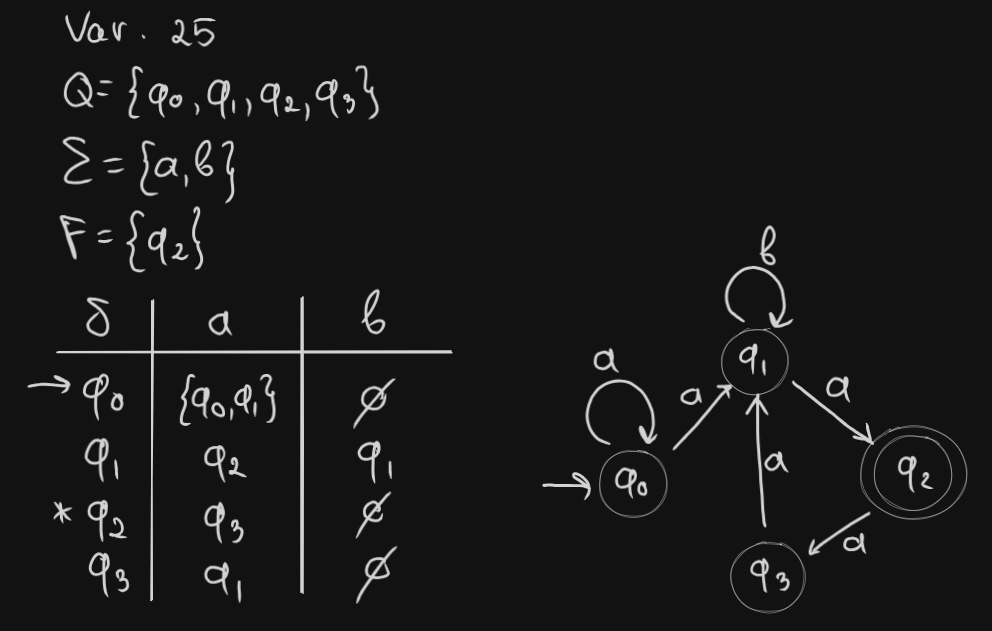 Var. 25
Q={q₀,q₁,q₂,q₃}
Σ={a,b}
F={q₂}
δ a b
→q₀ {q₀,q₁} ∅
q₁ q₂ q₁
*q₂ q₃ ∅
q₃ q₁ ∅
b
q₁
a
a
a
→ q₀
a
q₂
a
q₃